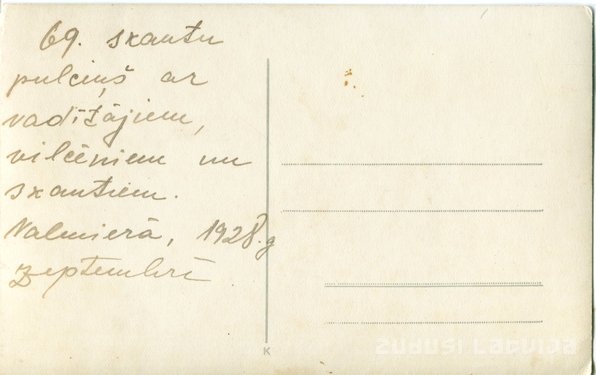 69. skautu
pulciņš ar
vadītājiem,
vilcēniem un
skautiem.
Valmierā, 1928.g
septembrī
K
zudusi Latvija